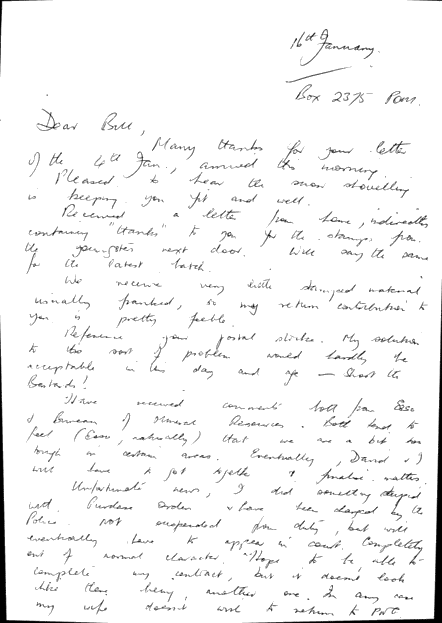 16th January.
Box 2375 Pom.
Dear Bill,
Many thanks for your letter
of the 4th Jan., arrived this morning.
Pleased to hear the snow shovelling
is keeping you fit and well.
Received a letter from home, indirectly
containing "thanks" to you for the stamps from
the youngster next door. Will say the same
for the latest batch.
We receive very little stamped material
usually franked, so my return contribution to
you is pretty feeble.
Reference your postal strike. My solution
to this sort of problem would hardly be
acceptable in this day and age — Shoot the
Bastards!
Have received comments both from Esso
& Bureau of Mineral Resources. Both tend to
feel (Esso, naturally) that we are a bit too
tough in certain areas. Eventually, David & I
will have to get together & finalise matters.
Unfortunate news, I did something stupid
with Purchase Orders & have been charged by the
Police. Not suspended from duty, but will
eventually have to appear in court. Completely
out of normal character. Hope to be able to
complete my contract, but it doesn't look
like there being another one. In any case
my wife doesn't wish to return to PNG.